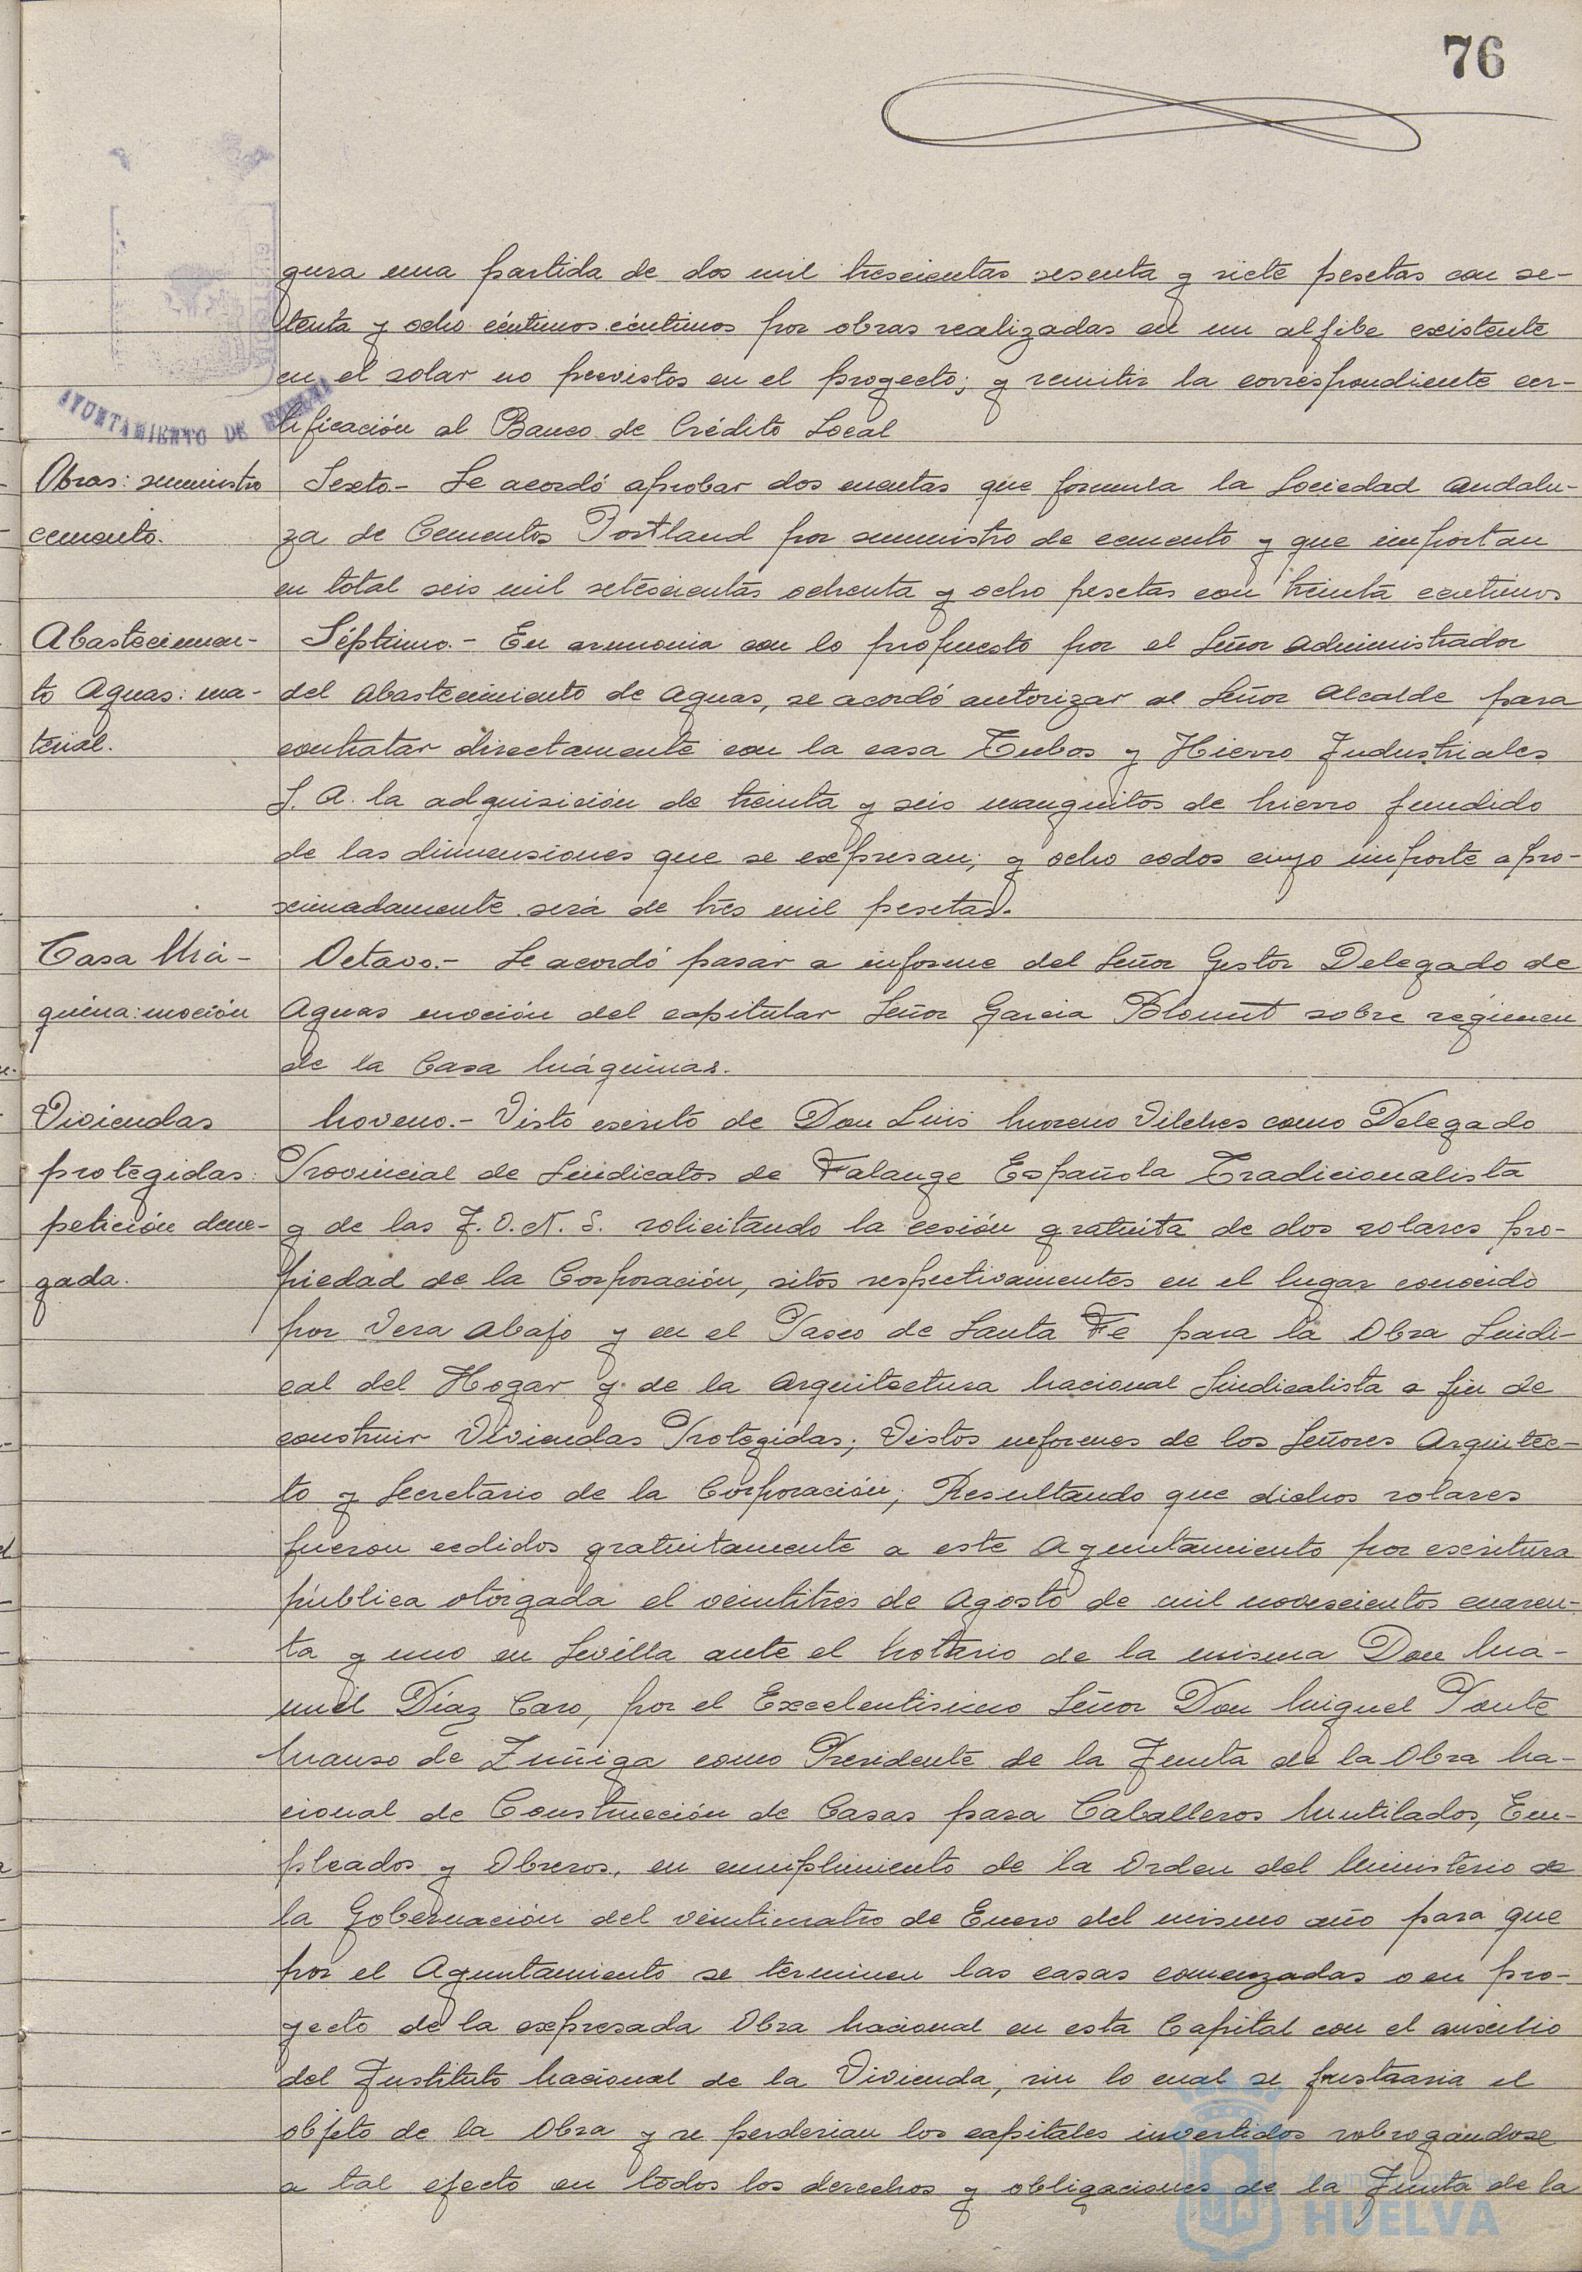 76
AYUNTAMIENTO DE HUELVA
gura una partida de dos mil trescientas sesenta y siete pesetas con se-
tenta y ocho céntimos céntimos por obras realizadas en un aljibe existente
en el solar no previstos en el proyecto; y remitir la correspondiente cer-
tificación al Banco de Crédito Local
Obras: suministro
cemento.
Sexto.- Se acordó aprobar dos cuentas que formula la Sociedad Andalu-
za de Cementos Portland por suministro de cemento y que importan
en total seis mil setescientas ochenta y ocho pesetas con treinta centimos
Abastecimien-
to Aguas: ma-
terial.
Séptimo.- En armonia con lo propuesto por el Señor Administrador
del Abastecimiento de Aguas, se acordó autorizar al Señor Alcalde para
contratar directamente con la casa Tubos y Hierro Industriales
S. A. la adquisición de treinta y seis manguitos de hierro fundido
de las dimensiones que se expresan; y ocho codos cuyo importe apro-
ximadamente será de tres mil pesetas.
Casa Má-
quina: moción
Octavo.- Se acordó pasar a informe del Señor Gestor Delegado de
Aguas moción del capitular Señor Garcia Blount sobre régimen
de la Casa Máquinas.
Viviendas
protegidas:
petición dene-
gada.
Noveno.- Visto escrito de Don Luis Moreno Vilches como Delegado
Provincial de Sindicatos de Falange Española Tradicionalista
y de las J.O.N.S. solicitando la cesión gratuita de dos solares pro-
piedad de la Corporación, sitos respectivamentes en el lugar conocido
por Vera Abajo y en el Paseo de Santa Fe para la Obra Sindi-
cal del Hogar y de la Arquitectura Nacional Sindicalista a fin de
construir Viviendas Protegidas; Vistos informes de los Señores Arquitec-
to y Secretario de la Corporación; Resultando que dichos solares
fueron cedidos gratuitamente a este Ayuntamiento por escritura
pública otorgada el veintitres de Agosto de mil novescientos cuaren-
ta y uno en Sevilla ante el Notario de la misma Don Ma-
nuel Díaz Caro, por el Excelentisimo Señor Don Miguel Ponte
Manso de Zuñiga como Presidente de la Junta de la Obra Na-
cional de Construcción de Casas para Caballeros Mutilados, Em-
pleados y Obreros, en cumplimiento de la Orden del Ministerio de
la Gobernación del veinticuatro de Enero del mismo año para que
por el Ayuntamiento se terminen las casas comenzadas o en pro-
yecto de la expresada Obra Nacional en esta Capital con el auxilio
del Instituto Nacional de la Vivienda, sin lo cual se frustraria el
objeto de la Obra y se perderian los capitales invertidos subrogandose
a tal efecto en todos los derechos y obligaciones de la Junta de la
Ayuntamiento de
HUELVA